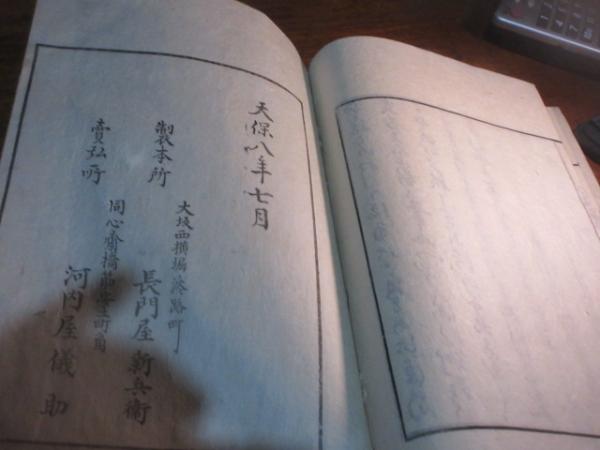 天保八年七月
製本所
大坂西横堀淡路町
長門屋新兵衛
賣弘所
同心齋橋筋
町角
河内屋儀助